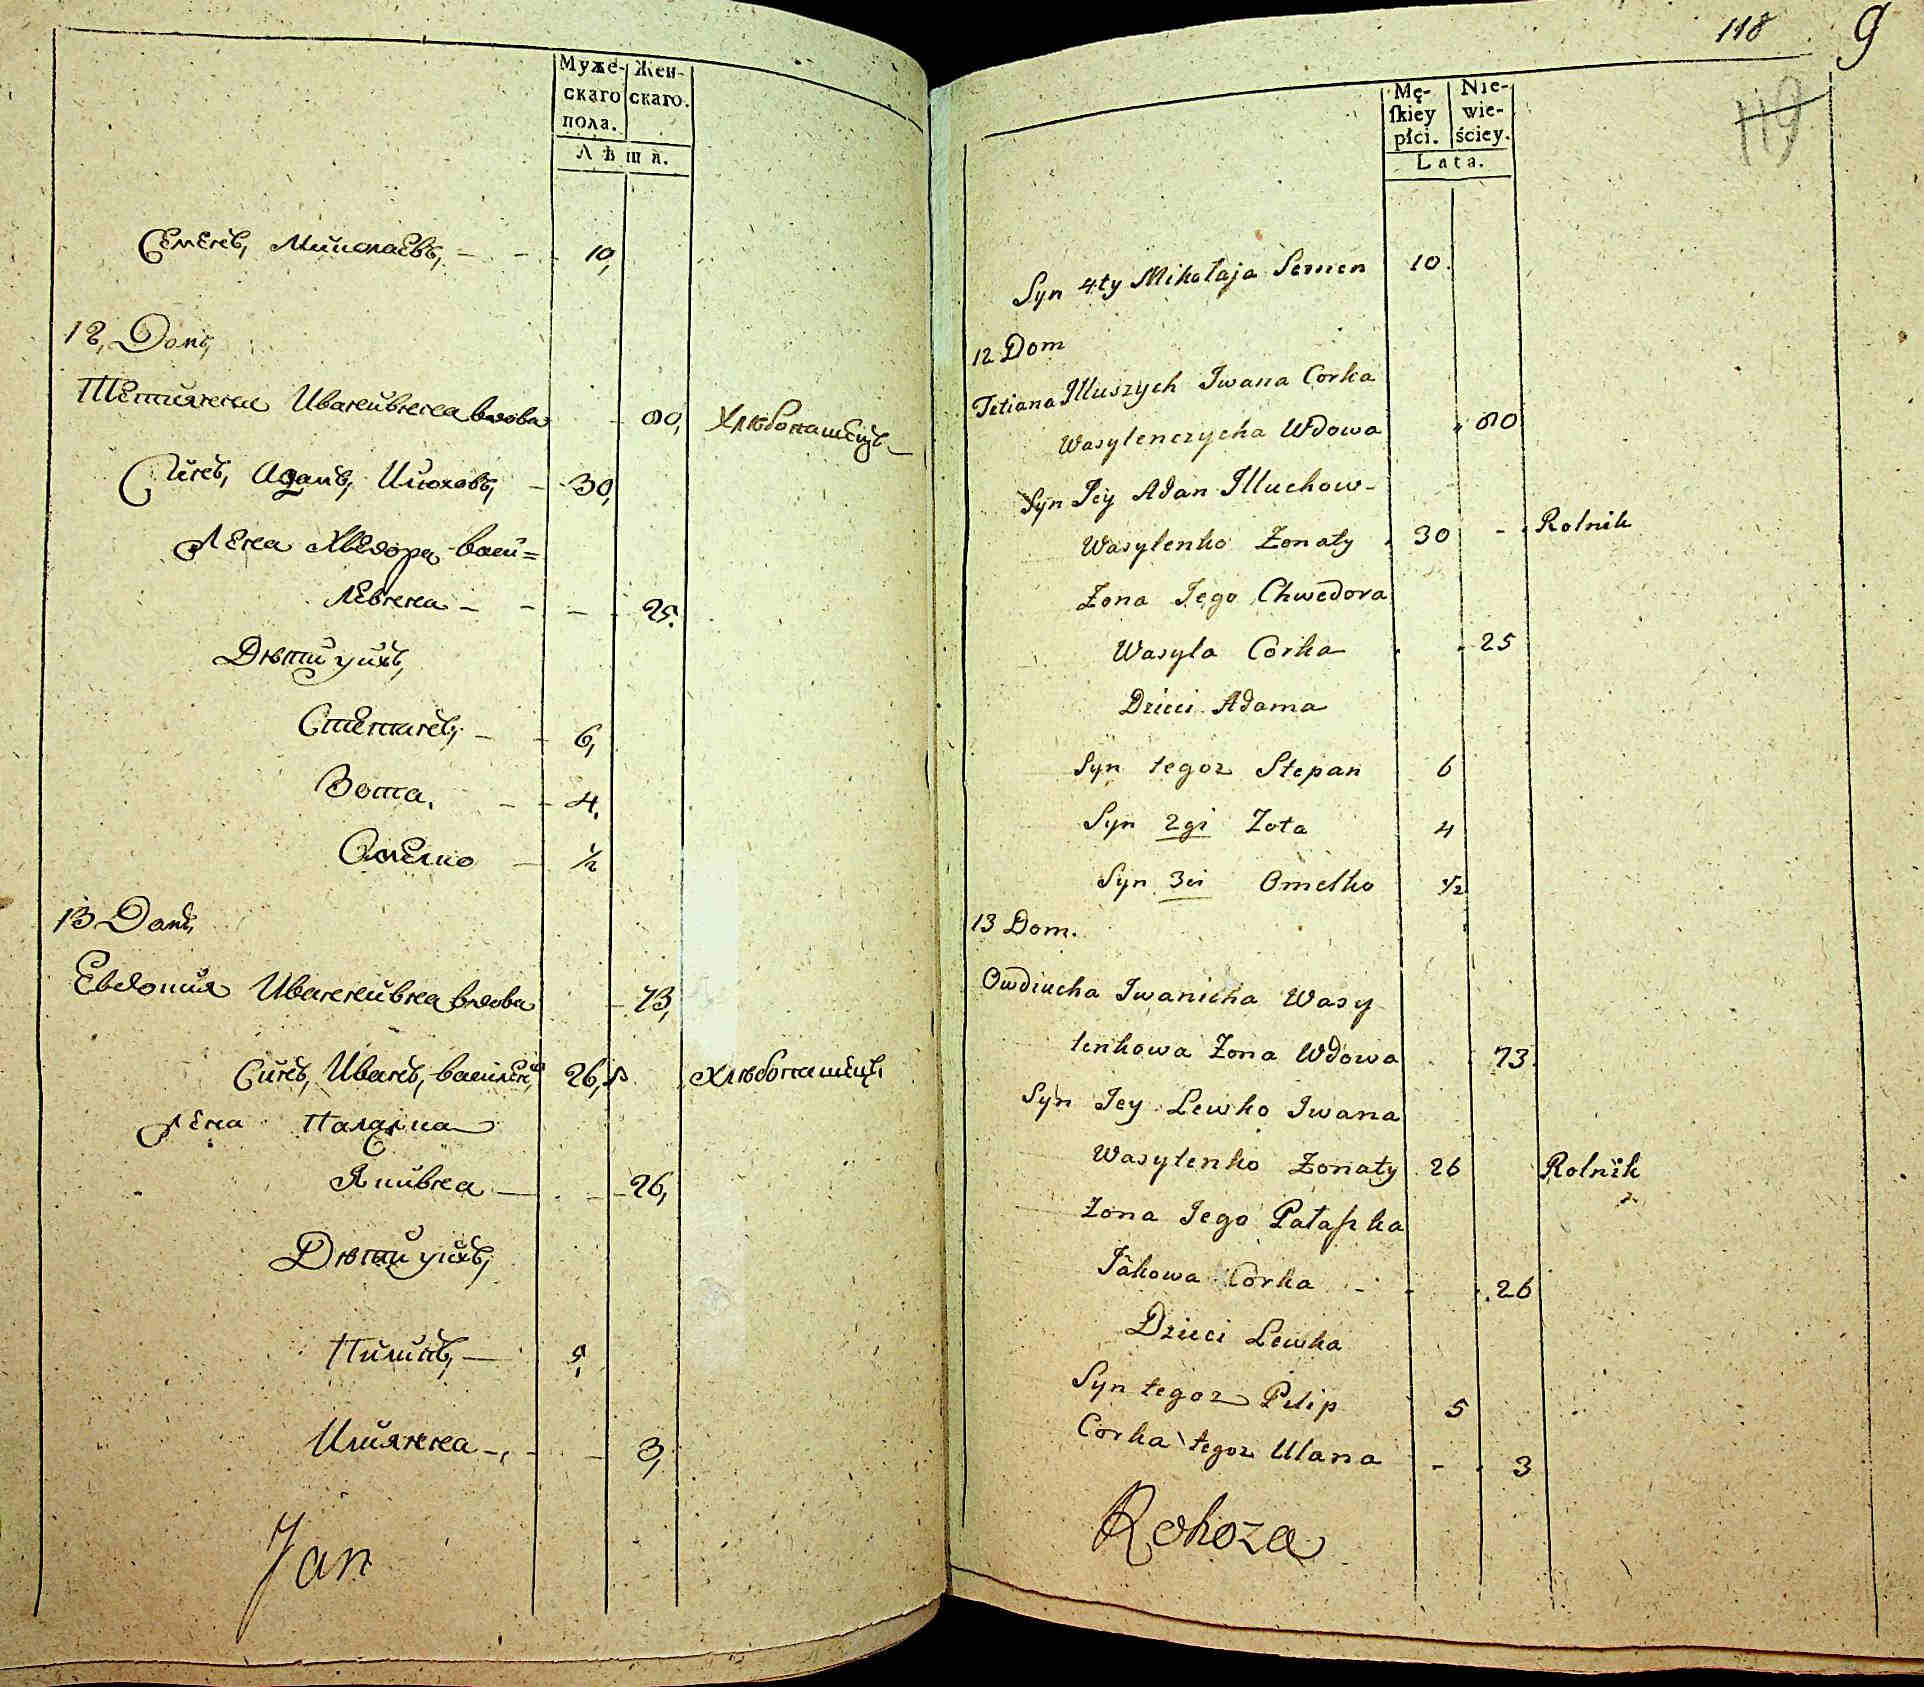 Муже-
скаго
пола.
Жен-
скаго.
Лѣта.
Семенъ, Миколаевъ, – – 10,
12, Домъ,
Тетияна Иванивна вдова – 80, Хлѣбопашецъ
Синъ, Адамъ, Илюховъ, – 30,
Жена Хведора васи=
левна – – – 25.
Дѣти ихъ,
Степанъ, – – 6,
Зота, – – 4,
Омелко – 1/2
13 Домъ,
Евдокия Иванивна вдова – 73,
Синъ, Иванъ, василен 26, Хлѣбопашецъ
Жена Палажка
Якивна – – – 26,
Дѣти ихъ,
Пилипъ, – 5,
Илияна – – – 3,
Jan
118
9
119
Mę-
skiey
płci.
Nie-
wie-
ściey.
Lata.
Syn 4ty Mikołaja Semen 10.
12 Dom
Tetiana Illuszych Jwana Corka
Wasylenczycha Wdowa 80
Syn Jey Adan Illuchow-
Wasylenko Zonaty 30 - Rolnik
Zona Jego Chwedora
Wasyla Corka 25
Dzieci Adama
Syn tegoz Stepan 6
Syn 2gi Zota 4
Syn 3ci Omelko 1/2
13 Dom.
Owdiucha Jwanicha Wasy
lenkowa Zona Wdowa 73
Syn Jey Lewko Jwana
Wasylenko Zonaty 26 Rolnik
Zona Jego Pałaszka
Jakowa Corka - 26
Dzieci Lewka
Syn tegoz Pilip 5
Corka tegoz Ulana - 3
Rohoza